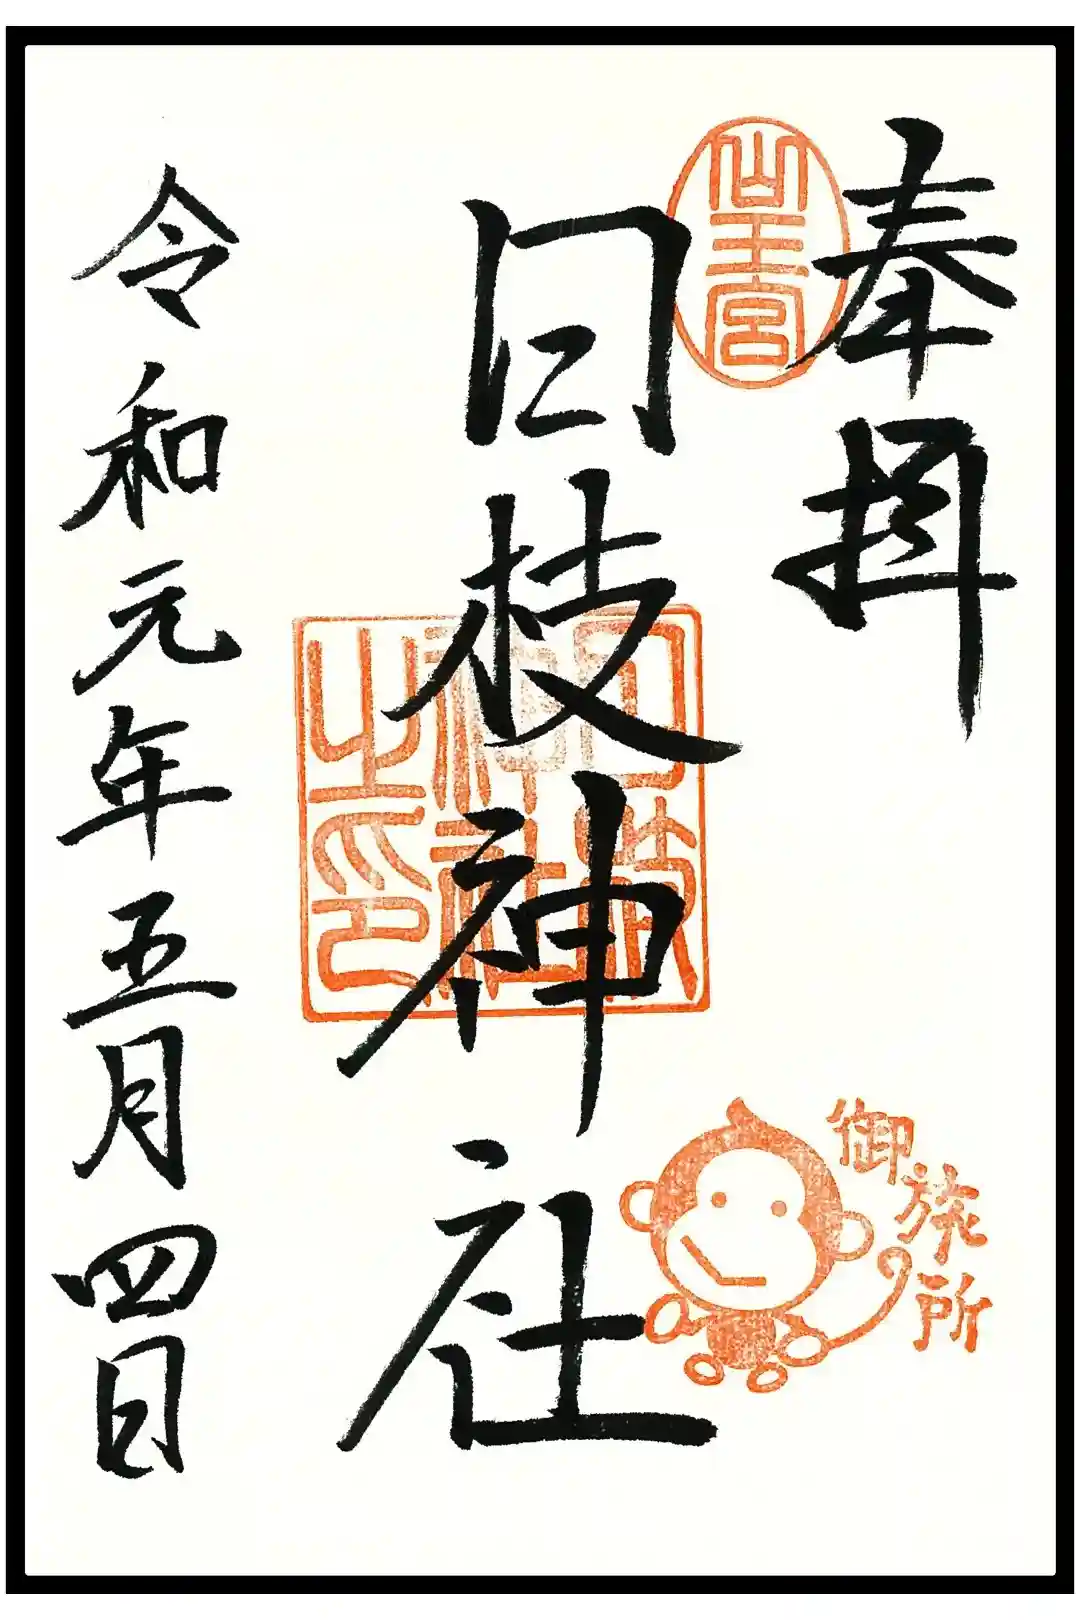 奉拝
山王宮
日枝神社
日枝
神社
之印
御旅所
令和元年五月四日